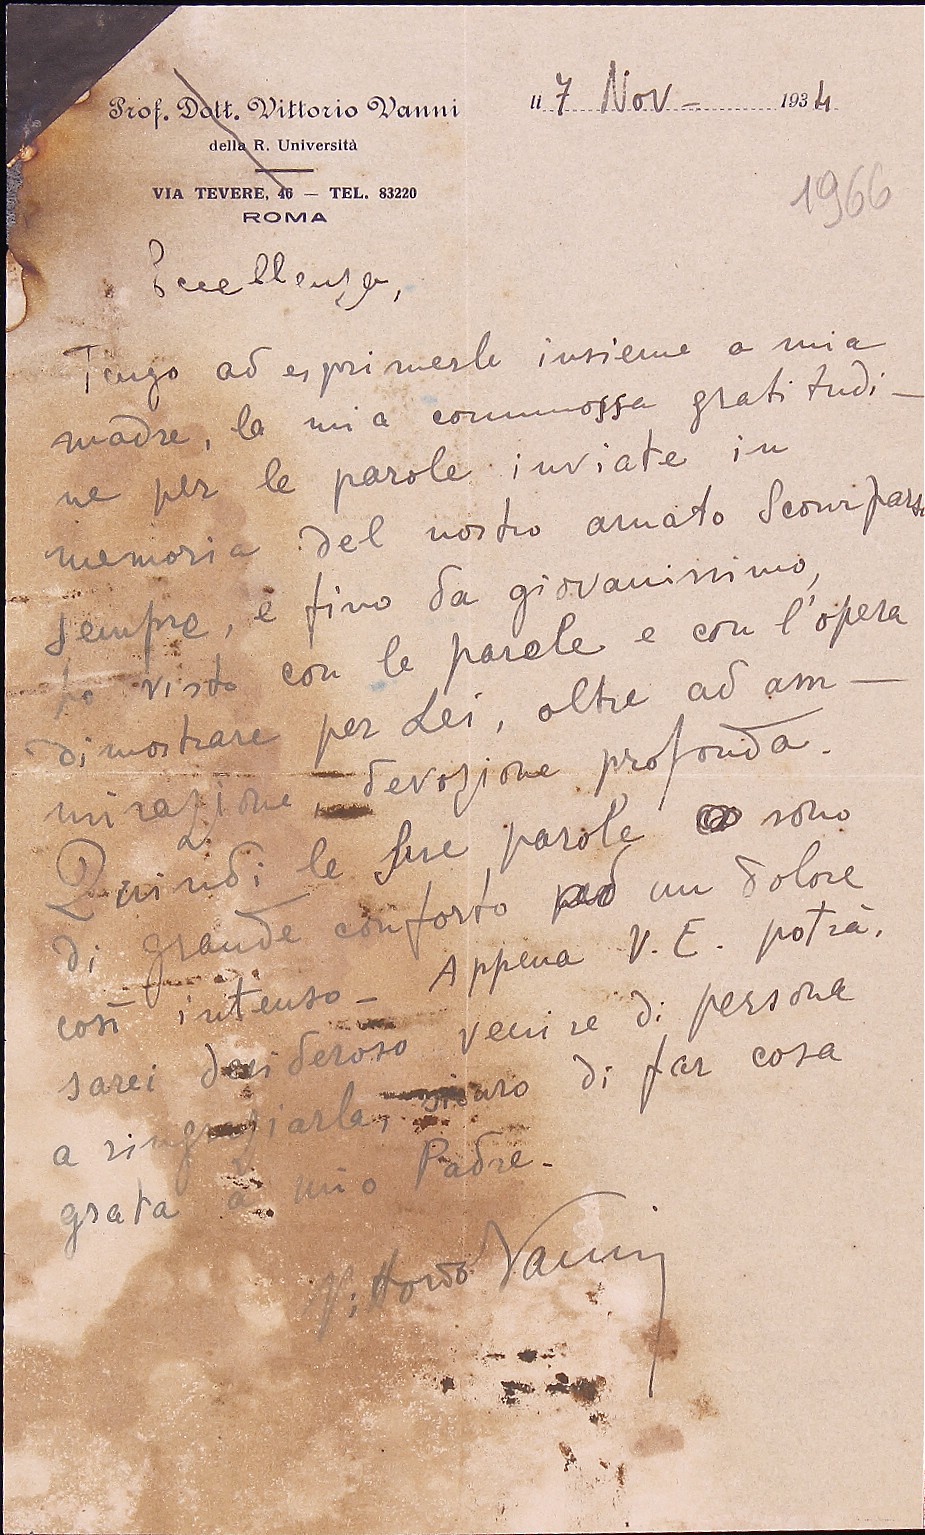 Prof. Dott. Vittorio Vanni
della R. Università
VIA TEVERE, 46 — TEL. 83220
ROMA
li 7 Nov - 1934
1966
Eccellenza,
Tengo ad esprimerle insieme a mia
madre, la mia commossa gratitudi-
ne per le parole inviate in
memoria del nostro amato Scomparso
Sempre, e fino da giovanissimo,
ho visto con le parole e con l'opera
dimostrare per Lei, oltre ad am-
mirazione, devozione profonda.
Quindi le Sue parole sono
di grande conforto ad un dolore
così intenso - Appena V. E. potrà,
sarei desideroso venire di persona
a ringraziarla, sicuro di far cosa
grata a mio Padre.
Vittorio Vanni